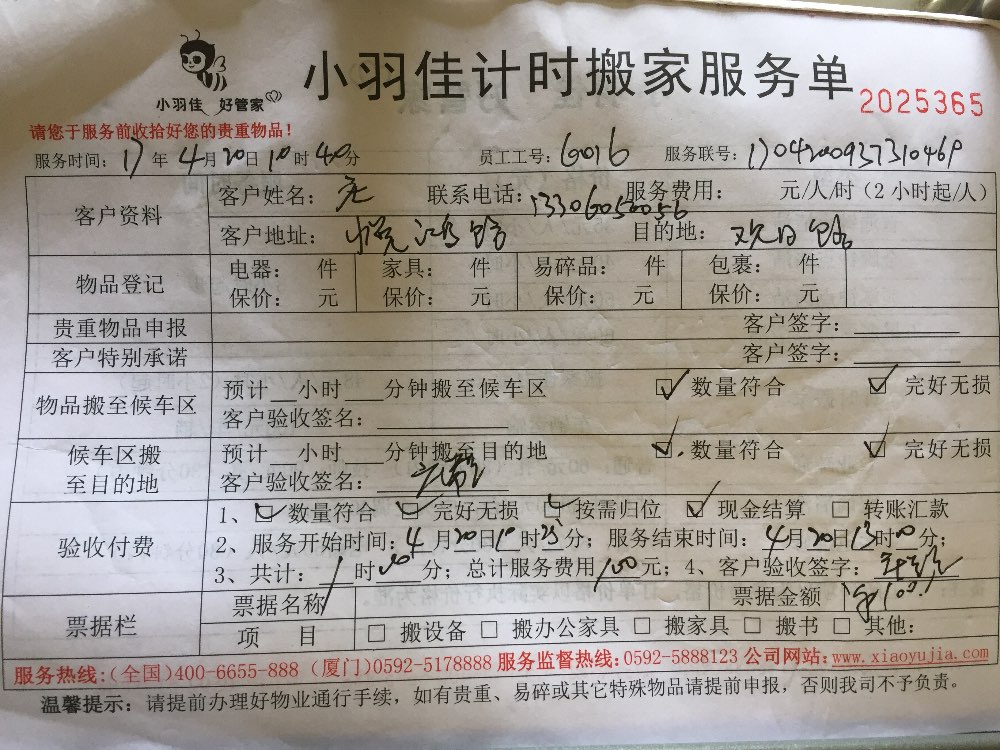 小羽佳 好管家
小羽佳计时搬家服务单
2025365
请您于服务前收拾好您的贵重物品！
服务时间：17年4月20日10时40分 员工工号：6016 服务联号：
客户资料
客户姓名： 联系电话： 服务费用： 元/人/时（2小时起/人）
客户地址： 目的地：
物品登记
电器： 件 家具： 件 易碎品： 件 包裹： 件
保价： 元 保价： 元 保价： 元 保价： 元
贵重物品申报 客户签字：
客户特别承诺 客户签字：
物品搬至候车区
预计__小时__分钟搬至候车区 ☑数量符合 ☑完好无损
客户验收签名：
候车区搬至目的地
预计__小时__分钟搬至目的地 ☑数量符合 ☑完好无损
客户验收签名：
验收付费
1、☑数量符合 ☑完好无损 ☑按需归位 ☑现金结算 □转账汇款
2、服务开始时间：4月20日 时 分；服务结束时间：4月20日13时00分；
3、共计： 时 分；总计服务费用100元；4、客户验收签字：
票据栏
票据名称 票据金额
项 目 □搬设备 □搬办公家具 □搬家具 □搬书 □其他：
服务热线：(全国)400-6655-888 (厦门)0592-5178888 服务监督热线：0592-5888123 公司网站：www.xiaoyujia.com
温馨提示：请提前办理好物业通行手续，如有贵重、易碎或其它特殊物品请提前申报，否则我司不予负责。